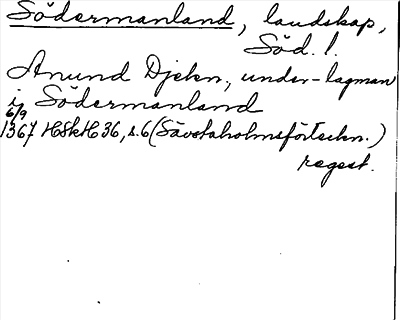 Södermanland, landskap,
Söd. l.
Anund Djekn, under-lagman
i Södermanland
6/9
1367 HSkH 36, s. 6 (Sävstaholmsförteckn.)
regest.